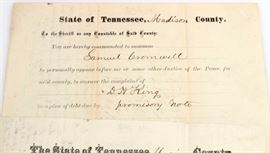 State of Tennessee, Madison County.
To the Sheriff or any Constable of Said County:
You are hereby commanded to summon
Samuel Cromwell
to personally appear before me or some other Justice of the Peace for
said county, to answer the complaint of
D. H. King
in a plea of debt due by promisory note
The State of Tennessee County